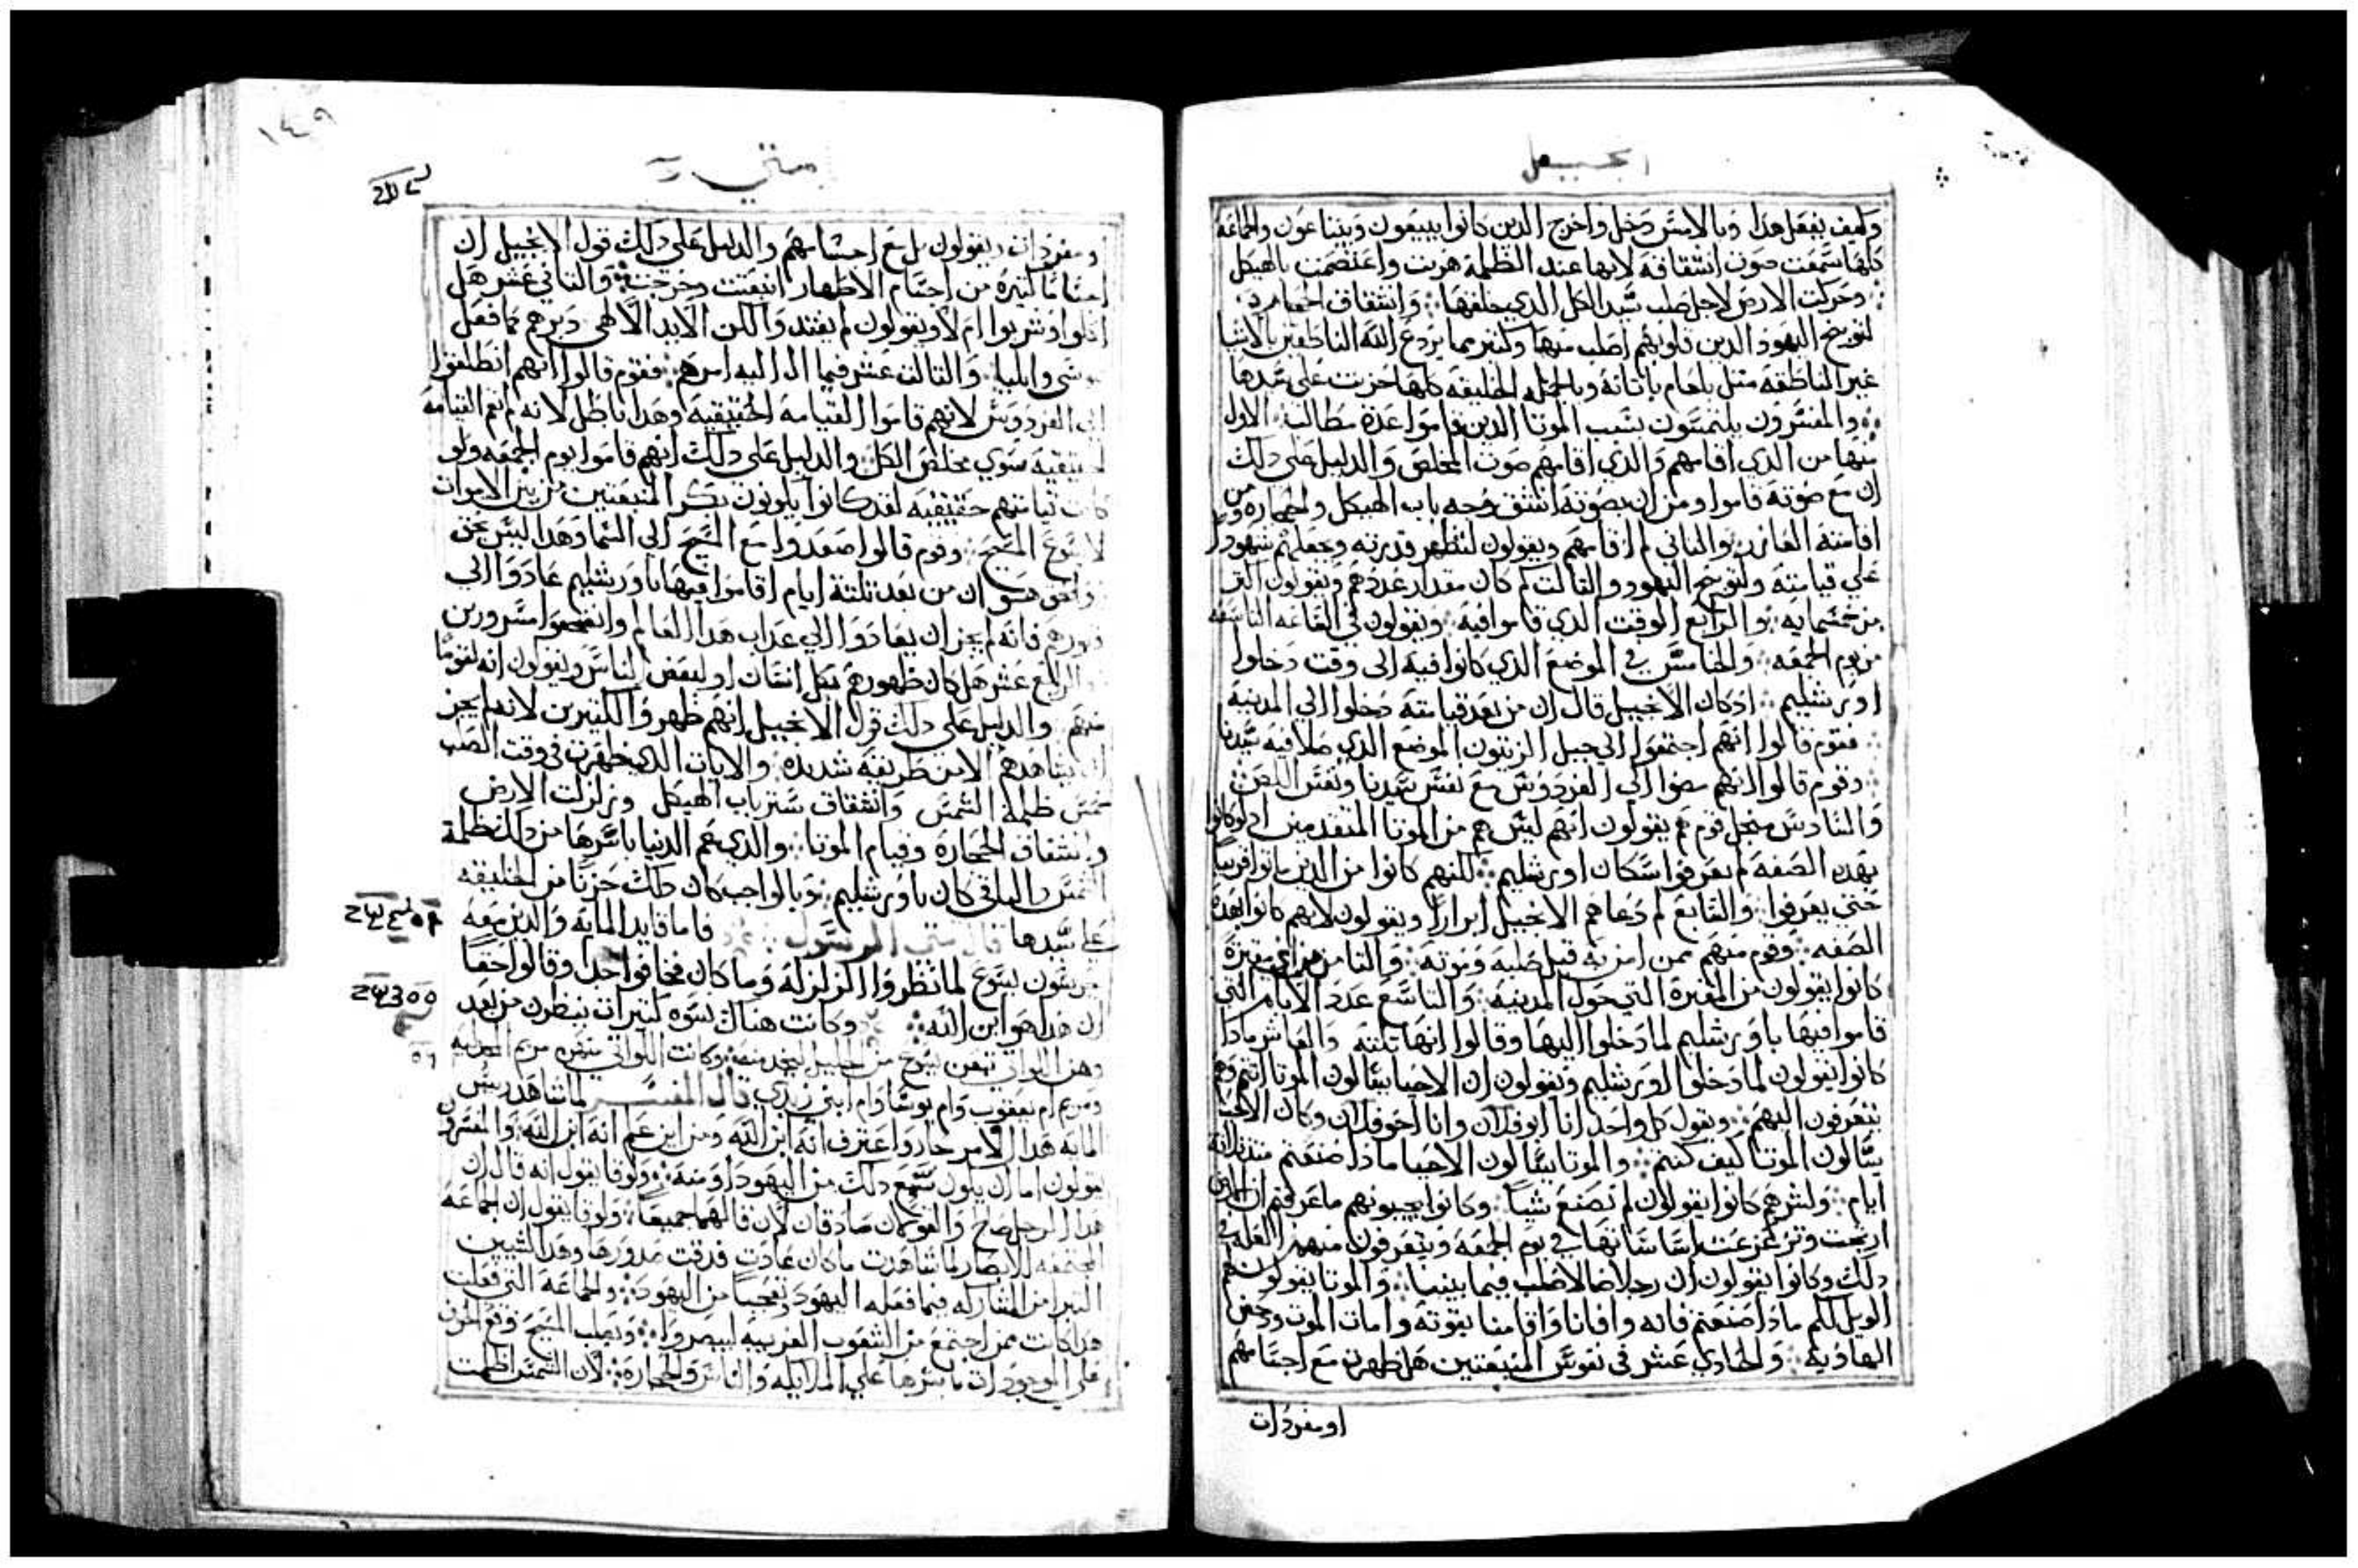 انجيل
وكيف يفعل هدا وبالامس دخل واخرج الدين كانوا يبيعون ويبتاعون والجماعة
كلها سمعت صوت انشقاقه لانها عند الظلمة هربت واعتصمت بالهيكل
وحركت الارض لاجل صلب سيد الكل الدي خلقها وانشقاق الحجارة
لتوبيخ اليهود الدين قلوبهم اصلب منها وكثير مما يردع الله الناطقين بالاشيا
غير الناطقه مثل بلعام باتانه وبالجمله الخليقه كلها حزنت على سيدها
والمفسرون يلتمسون بسبب الموتا الدين قاموا عدة مطالب الاول
منها من الدي اقامهم والدي اقامهم صوت المخلص والدليل على دلك
ان مع صوته قاموا ومن ان بصوته انشق وجه باب الهيكل والحجارة ومن
اقامته العازر والتاني لم اقامهم ويقولون لتظهر قدرته وجعلهم شهودا
على قيامته ولتوبيخ اليهود والتالت كم كان مقدار عددهم ويقولون اكتر
من خمسمايه والرابع الوقت الدي قاموا فيه ويقولون في الساعه التاسعه
من يوم الجمعه والخامس في الموضع الدي كانوا فيه الى وقت دخلوا
اورشليم ادكان الانجيل قال ان من بعد قيامته دخلوا الى المدينة
فقوم قالوا انهم اجتمعوا الى جبل الزيتون الموضع الدي صلا فيه سيدنا
وقوم قالوا انهم مضوا الى الفردوس مع نفس سيدنا ونفس اللص
والسادس منجل قوم هم يقولون انهم ليس هم من الموتا المتقدمين اد لو كانوا
بهده الصفه لم يعرفوا سكان اورشليم لكنهم كانوا من الدين ماتوا قريبا
حتى يعرفوا والسابع لم دعاهم الانجيل ابرارا ويقولون لانهم كانوا بهده
الصفه وقوم منهم ممن امن به قبل صلبه وموته والتامن من اي مقبرة
كانوا يقولون من المقبرة التي حول المدينه والتاسع عدد الايام التي
قاموا فيها باورشليم لما دخلوا اليها وقالوا انها تلته والعاشر مادا
كانوا يقولون لما دخلوا اورشليم ويقولون ان الاحيا يسالون الموتا انتم وهم
يتعرفون اليهم ويقول كل واحد انا ابو فلان وانا اخو فلان وكان الاحيا
يسالون الموتا كيف كنتم والموتا يسالون الاحيا مادا صنعتم مند تلته
ايام ولشرهم كانوا يقولون لم نصنع شيا وكانوا يجيبونهم ما عرفتم ان الارض
ارتجت وتزعزعت اساساتها في يوم الجمعه ويتعرفون منهم العله في
دلك وكانوا يقولون ان رجلا ضالا صلب فيما بيننا والموتا يقولون لهم
الويل لكم مادا صنعتم فانه وافانا واقامنا بقوته وامات الموت
الهاويه والحادي عشر في نفوس المنبعتين هل ظهرت مع اجسامهم
او مفردات
١٤٩
متى
او مفردات ويقولون بل مع اجسامهم والدليل على دلك قول الانجيل ان
اجساما كتيرة من اجسام الاطهار انبعتت وخرجت والتاني عشر هل
اكلوا وشربوا ام لا ويقولون لم يغتد والكن الايد الالاهي دبرهم كما فعل
موسى وايليا والتالت عشر فيما ال اليه امرهم فقوم قالوا انهم انطلقوا
الى الفردوس لانهم قاموا القيامة الحقيقيه وهدا باطل لانه لم يقم القيامة
الحقيقيه سوى مخلص الكل والدليل على دلك انهم قاموا يوم الجمعه ولو
كانت قيامتهم حقيقيه لقد كانوا يكونون بكر المنبعتين من بين الاموات
لا يسوع المسيح وقوم قالوا صعدوا مع المسيح الى السما وهدا ليس بحق
والحق هو ان من بعد تلتة ايام اقاموا فيها باورشليم عادوا الى
قبورهم فانه لم يجز ان يعادوا الى عداب هدا العالم وانضجعوا مسرورين
والرابع عشر هل كان ظهورهم لكل انسان او لبعض الناس ويقولون انه لقوم
منهم والدليل على دلك قول الانجيل انهم ظهروا لكتيرين لانه لم يجز
ان يشاهدهم الا من طريقه شديده والايات التي ظهرت في وقت الصلب
خمس ظلمة الشمس وانشقاق ستر باب الهيكل وزلزلت الارض
وانشقاق الحجارة وقيام الموتا والدي عم الدنيا باسرها من دلك ظلمة
الشمس والباقي كان باورشليم وبالواجب كان دلك حزنا من الخليقه
على سيدها قال متى الرسول فاما قايد المايه والدين معه
يحرسون يسوع لما نظروا الزلزله وما كان فخافوا جدا وقالوا حقا
ان هدا هو ابن الله وكانت هناك نسوه كتيرات ينظرن من بعد
وهن اللواتي تبعن يسوع من الجليل ليخدمنه وكانت اللواتي منهن مريم المجدليه
ومريم ام يعقوب وام يوسا وام ابني زبدي قال المفسر لما شاهد ريس
المايه هدا الامر حار واعترف انه ابن الله ومن اين علم انه ابن الله والمفسرون
يقولون اما ان يكون سمع دلك من اليهود او منه ولوقا يقول انه قال ان
هدا الرجل صالح والقولان صادقان لان قالهما جميعا ولوقا يقول ان الجماعة
المجتمعه للابصار لما شاهدت ما كان عادت تدق صدورها وهدا لشيين
التبرا من المشاركه فيما فعله اليهود وتعجبا من اليهود والجماعة التي فعلت
هدا كانت ممن اجتمع من الشعوب الغريبه ليبصروا وبصلب المسيح وقع الحزن
على الموجودات باسرها على الملايكه والناس والحجارة لان الشمس اظلمت